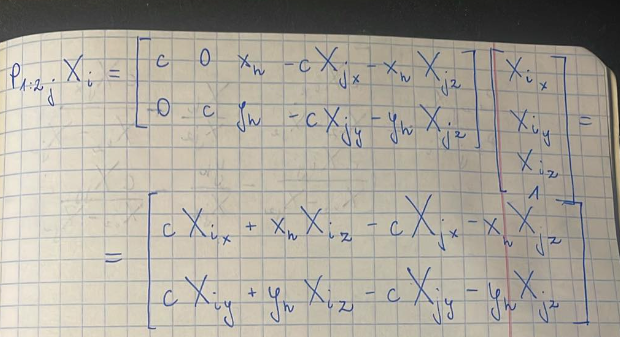 P_{1:2_j} X_i = [ c 0 x_n -c X_{jx} - x_n X_{jz} ] [ X_{ix}
0 c y_n -c X_{jy} - y_n X_{jz} ] X_{iy} =
X_{iz}
1 ]
= [ c X_{ix} + x_n X_{iz} - c X_{jx} - x_n X_{jz}
c X_{iy} + y_n X_{iz} - c X_{jy} - y_n X_{jz} ]